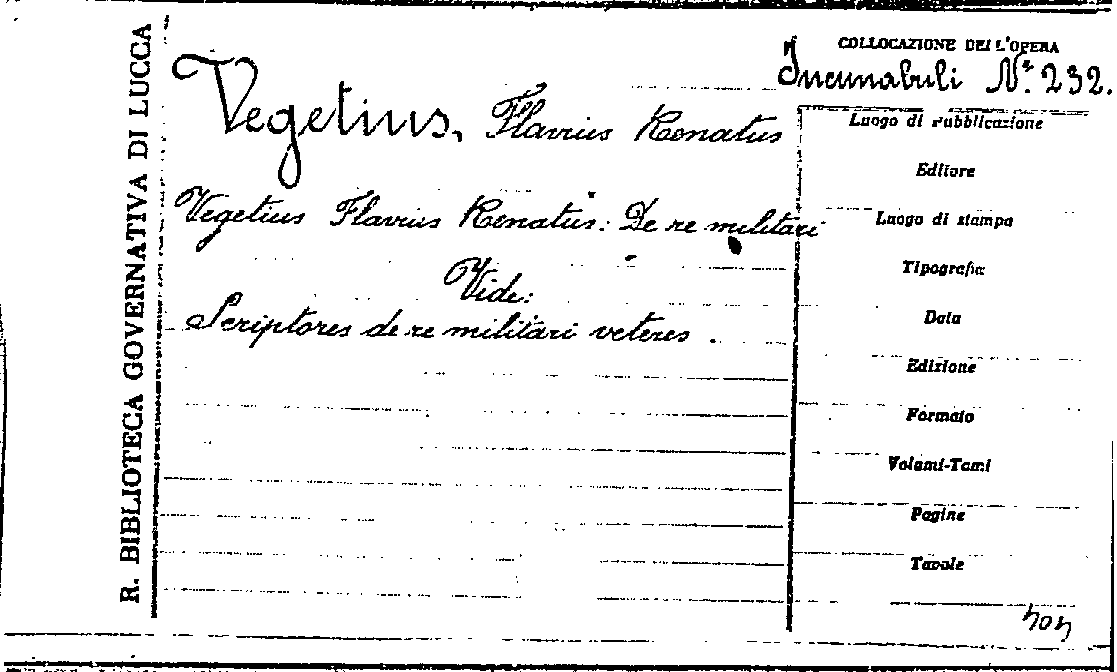 R. BIBLIOTECA GOVERNATIVA DI LUCCA
COLLOCAZIONE DELL'OPERA
Incunabuli N.º 232.
Vegetius, Flavius Renatus
Vegetius Flavius Renatus: De re militari
Vide:
Scriptores de re militari veteres.
Luogo di pubblicazione
Editore
Luogo di stampa
Tipografia
Data
Edizione
Formato
Volumi-Tomi
Pagine
Tavole
404